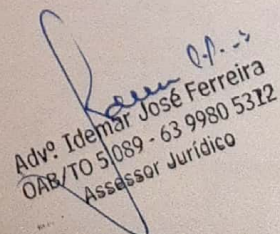 Advº. Idemar José Ferreira
OAB/TO 5/089 - 63 9980 5312
Assessor Jurídico